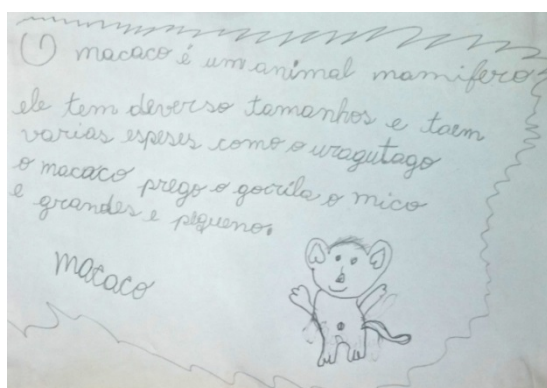 O macaco é um animal mamifero
ele tem deverso tamanhos e taem
varias espeses como o uragutago
o macaco prego o gocrila o mico
e grandes e pequeno.
Macaco